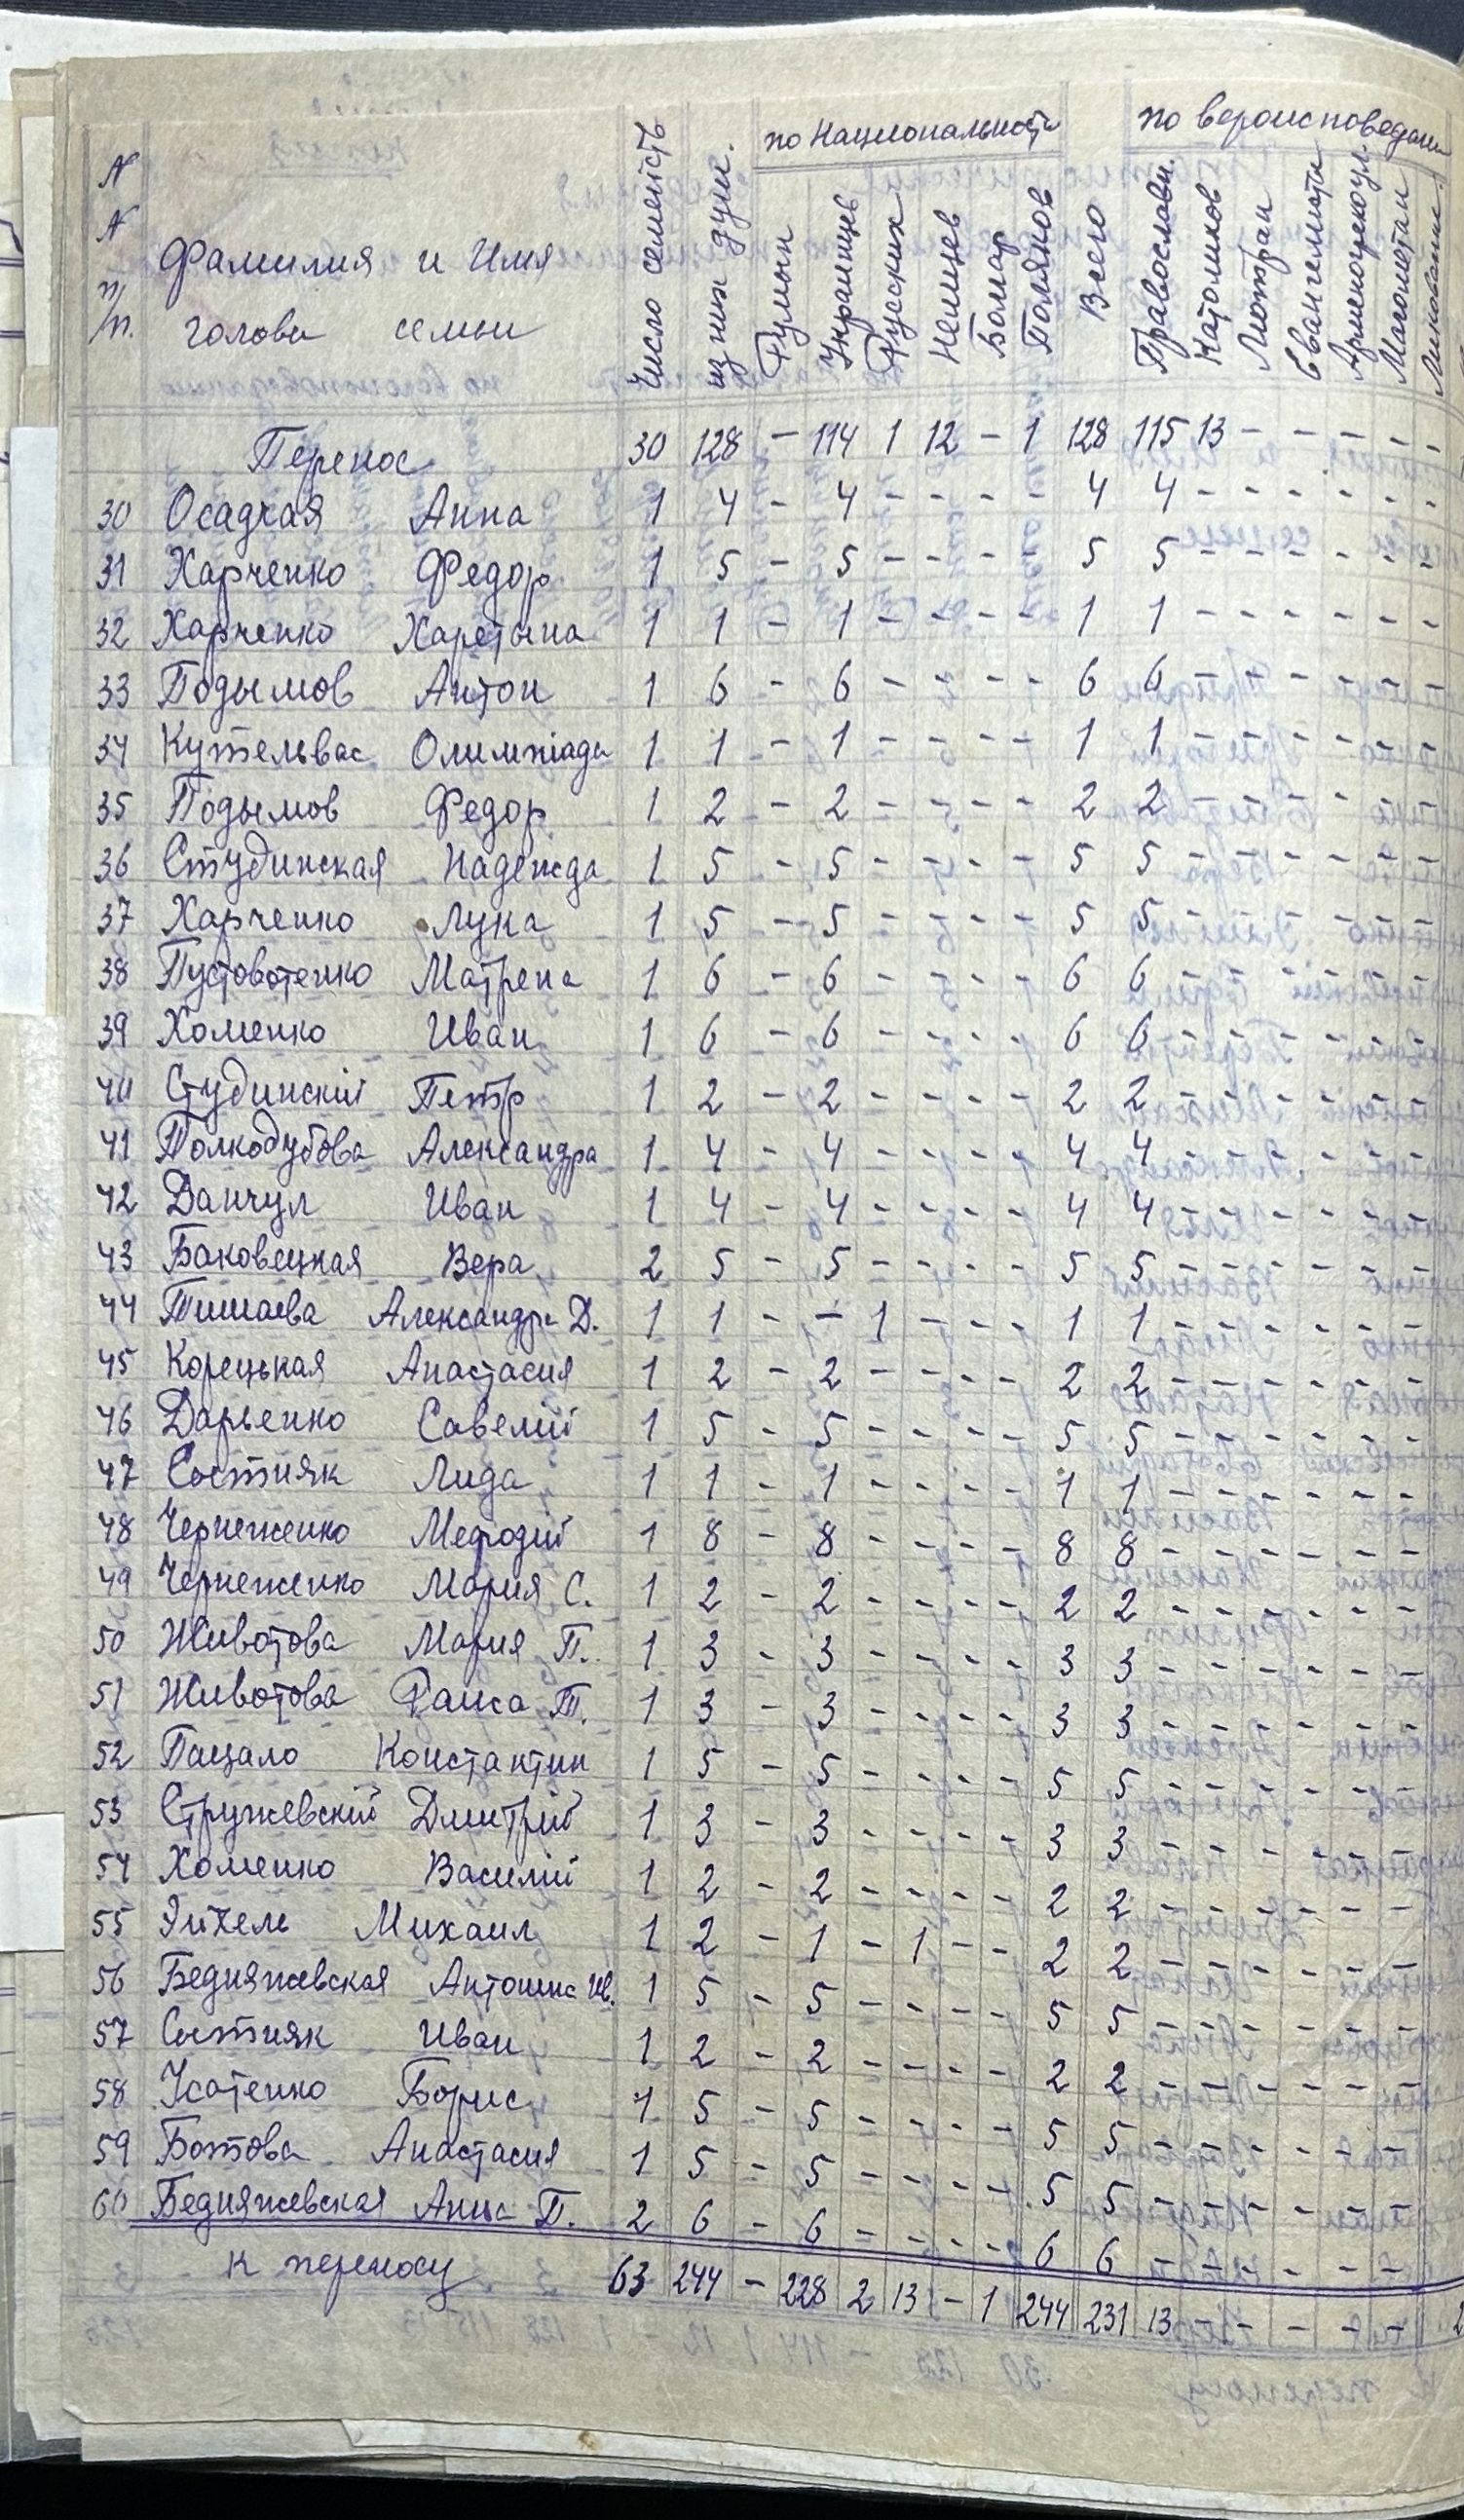 по Национальности по вероисповедани
N N п/п. Фамилия и Имя голови семьи Число семейств из них душ. Румын Украинцев Русских Немцев Болгар Поляков Всего Православн. Католиков Лютран Евангелисти Армянокул. Магометан
Перенос 30 128 - 114 1 12 - 1 128 115 13 - - - - -
30 Осадчая Анна 1 4 - 4 - - - - 4 4 - - - - - -
31 Харченко Федор 1 5 - 5 - - - - 5 5 - - - - - -
32 Харченко Харетына 1 1 - 1 - - - - 1 1 - - - - - -
33 Подымов Антон 1 6 - 6 - - - - 6 6 - - - - - -
34 Кутельвас Олимпіада 1 1 - 1 - - - - 1 1 - - - - - -
35 Подымов Федор 1 2 - 2 - - - - 2 2 - - - - - -
36 Студинская Надежда 1 5 - 5 - - - - 5 5 - - - - - -
37 Харченко Лука 1 5 - 5 - - - - 5 5 - - - - - -
38 Пустовотенко Матрена 1 6 - 6 - - - - 6 6 - - - - - -
39 Хоменко Иван 1 6 - 6 - - - - 6 6 - - - - - -
40 Студинскій Петр 1 2 - 2 - - - - 2 2 - - - - - -
41 Полкодубова Александра 1 4 - 4 - - - - 4 4 - - - - - -
42 Данчул Иван 1 4 - 4 - - - - 4 4 - - - - - -
43 Баковецкая Вера 2 5 - 5 - - - - 5 5 - - - - - -
44 Тишаева Александра Д. 1 1 - - 1 - - - 1 1 - - - - - -
45 Корецькая Анастасия 1 2 - 2 - - - - 2 2 - - - - - -
46 Дарьенко Савелій 1 5 - 5 - - - - 5 5 - - - - - -
47 Состняк Лида 1 1 - 1 - - - - 1 1 - - - - - -
48 Чернеженко Мефодій 1 8 - 8 - - - - 8 8 - - - - - -
49 Чернеженко Мария С. 1 2 - 2 - - - - 2 2 - - - - - -
50 Животова Мария П. 1 3 - 3 - - - - 3 3 - - - - - -
51 Животова Раиса Т. 1 3 - 3 - - - - 3 3 - - - - - -
52 Пацало Константин 1 5 - 5 - - - - 5 5 - - - - - -
53 Стружевскій Дмитрій 1 3 - 3 - - - - 3 3 - - - - - -
54 Хоменко Василій 1 2 - 2 - - - - 2 2 - - - - - -
55 Эйхель Михаил 1 2 - 1 - 1 - - 2 2 - - - - - -
56 Бедняжевская Антонина Ив. 1 5 - 5 - - - - 5 5 - - - - - -
57 Состняк Иван 1 2 - 2 - - - - 2 2 - - - - - -
58 Усатенко Борис 1 5 - 5 - - - - 5 5 - - - - - -
59 Ботова Анастасия 1 5 - 5 - - - - 5 5 - - - - - -
60 Бедняжевская Анна П. 2 6 - 6 - - - - 6 6 - - - - - -
к переносу 63 244 - 228 2 13 - 1 244 231 13 - - - - -